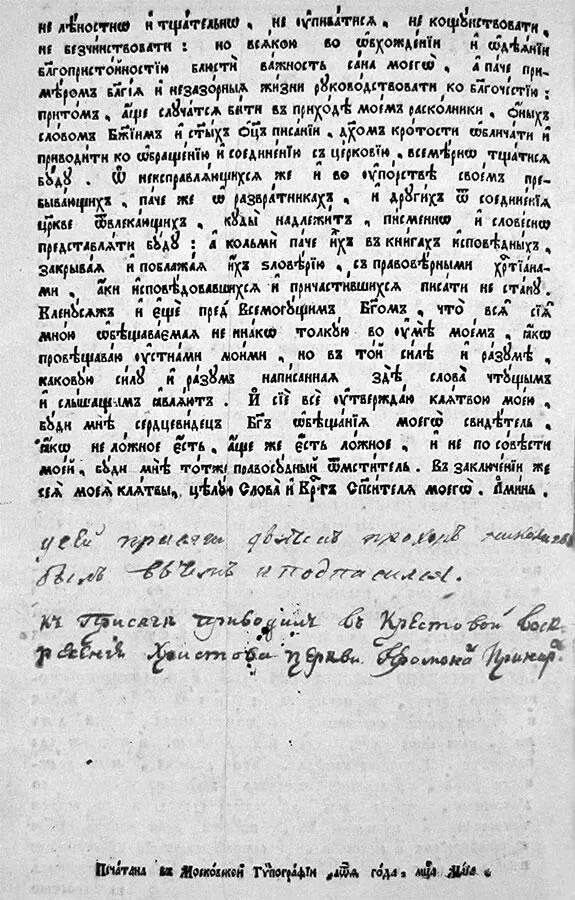 не лѣностнѡ и҆ тщательнѡ , не ᲂу҆пиватися , не кощунствовати ,
не безчинствовати : но всякою во ѡ҆бхожденїи и҆ ѡ҆дѣянїи
благопристойностїю блюсти важность сана моегѡ , а҆ паче при-
мѣромъ бл҃гїѧ и҆ незазорныѧ жизни руководствовати ко благочестїю :
притомъ , а҆ще случатся быти въ приходѣ моемъ раскольники , ѻ҆ныхъ
словомъ Бж҃їимъ и҆ ст҃ыхъ ѻ҆ц҃ъ писанїи , дх҃омъ кротости ѡ҆бличати и҆
приводити ко ѡ҆бращенїю и҆ соединенїю съ церковїю , всемѣрнѡ тщатися
буду . Ѿ неисправляющихся же и҆ во ᲂу҆порствѣ своемъ пре-
бывающихъ , паче же ѡ҆ развратникахъ , и҆ другихъ ѿ соединенїя
цр҃кве ѿвлекающихъ , куды надлежитъ , писменнѡ и҆ словеснѡ
представляти буду : а҆ кольми паче и҆хъ въ книгахъ и҆сповѣдныхъ ,
закрывая и҆ поблажая и҆хъ ѕловѣрїю , съ правовѣрными хрⷭ҇тїана-
ми , а҆ки и҆сповѣдовавшихся и҆ причастившихся писати не стану .
Кленусяжъ и҆ є҆ще пред Всемогущимъ Бг҃омъ , что вся сїя
мною ѡ҆бѣщаваемая не инакѡ толкую во ᲂу҆мѣ моемъ , ꙗ҆кѡ
провѣщаваю ᲂу҆стнами моими , но въ той силѣ и҆ разумѣ ,
каковую силу и҆ разумъ написанная здѣ слова чтущымъ
и҆ слышащымъ ꙗ҆вляютъ . И҆ сїе все ᲂу҆тверждаю клятвою моею ,
буди мнѣ сердцевидецъ Бг҃ъ ѡ҆бѣщанїя моегѡ свидѣтель ,
ꙗ҆кѡ не ложное є҆сть , а҆ще же є҆сть ложное , и҆ не по совѣсти
моей , буди мнѣ тотже правосудный ѿмститель . Въ заключенїи же
сея моея клятвы , цѣлую Слова и҆ Крⷭ҇тъ Сп҃сителя моегѡ . А҆минь .
у сей присяги прохоръ
былъ и подписался.
къ Присяги приводилъ въ Крестовой воск-
ресенїя Христова церкви
Печатана въ Московской Тѷпографїи года , мцⷭ҇а Маїа .